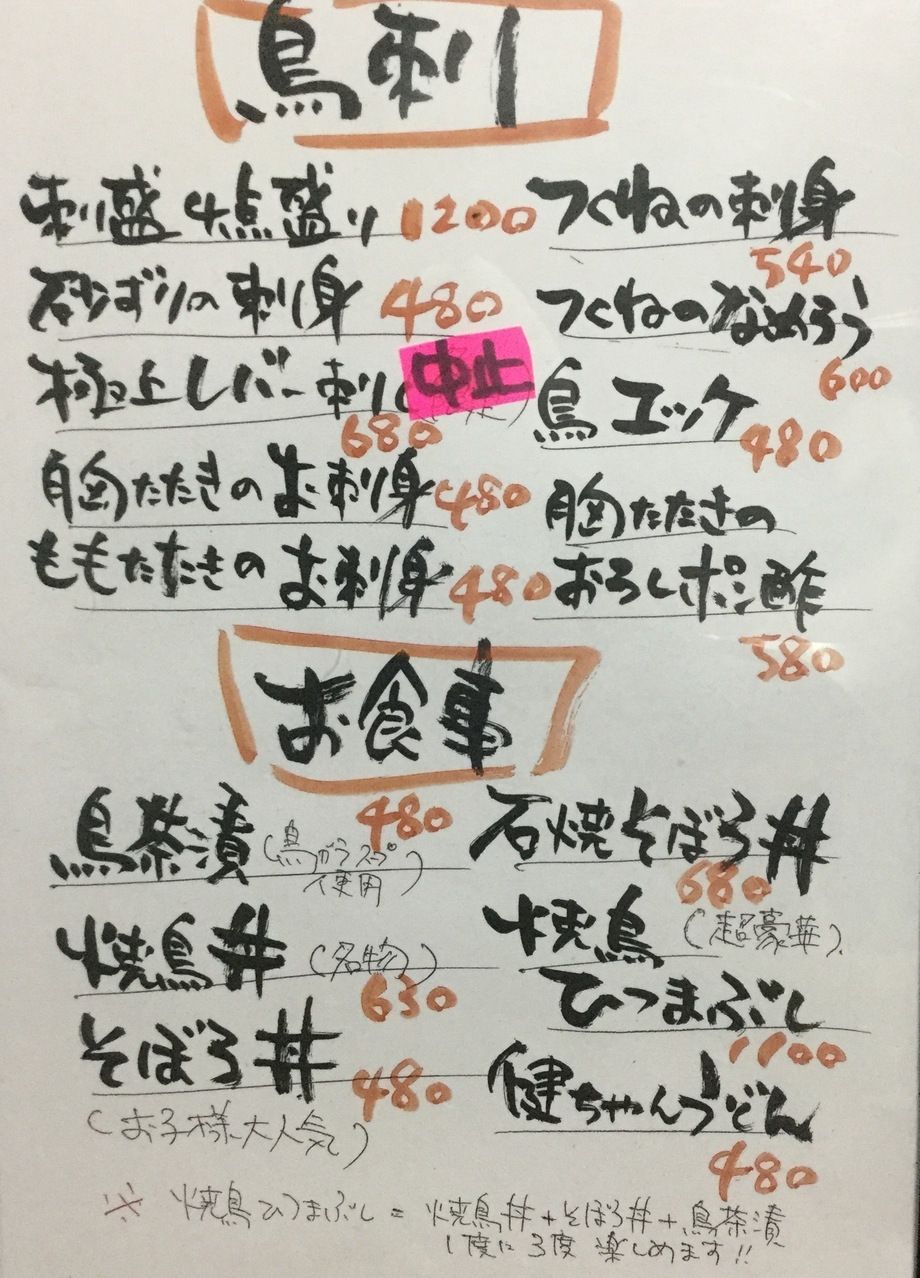 鳥刺
刺盛 4点盛り 1200
砂ずりの刺身 480
極上レバー刺し 中止
680
胸たたきのお刺身 480
ももたたきのお刺身 480
つくねの刺身
540
つくねのなめろう
600
鳥エッケ
480
胸たたきの
おろしポン酢
580
お食事
鳥茶漬 480
(鳥ガラスープ
使用)
焼鳥丼 (名物)
630
そぼろ丼 480
(お子様大人気)
石焼そぼろ丼
680
焼鳥 (超豪華)
ひつまぶし
1100
健ちゃんうどん
480
※ 焼鳥ひつまぶし = 焼鳥丼+そぼろ丼+鳥茶漬
1度に3度楽しめます!!